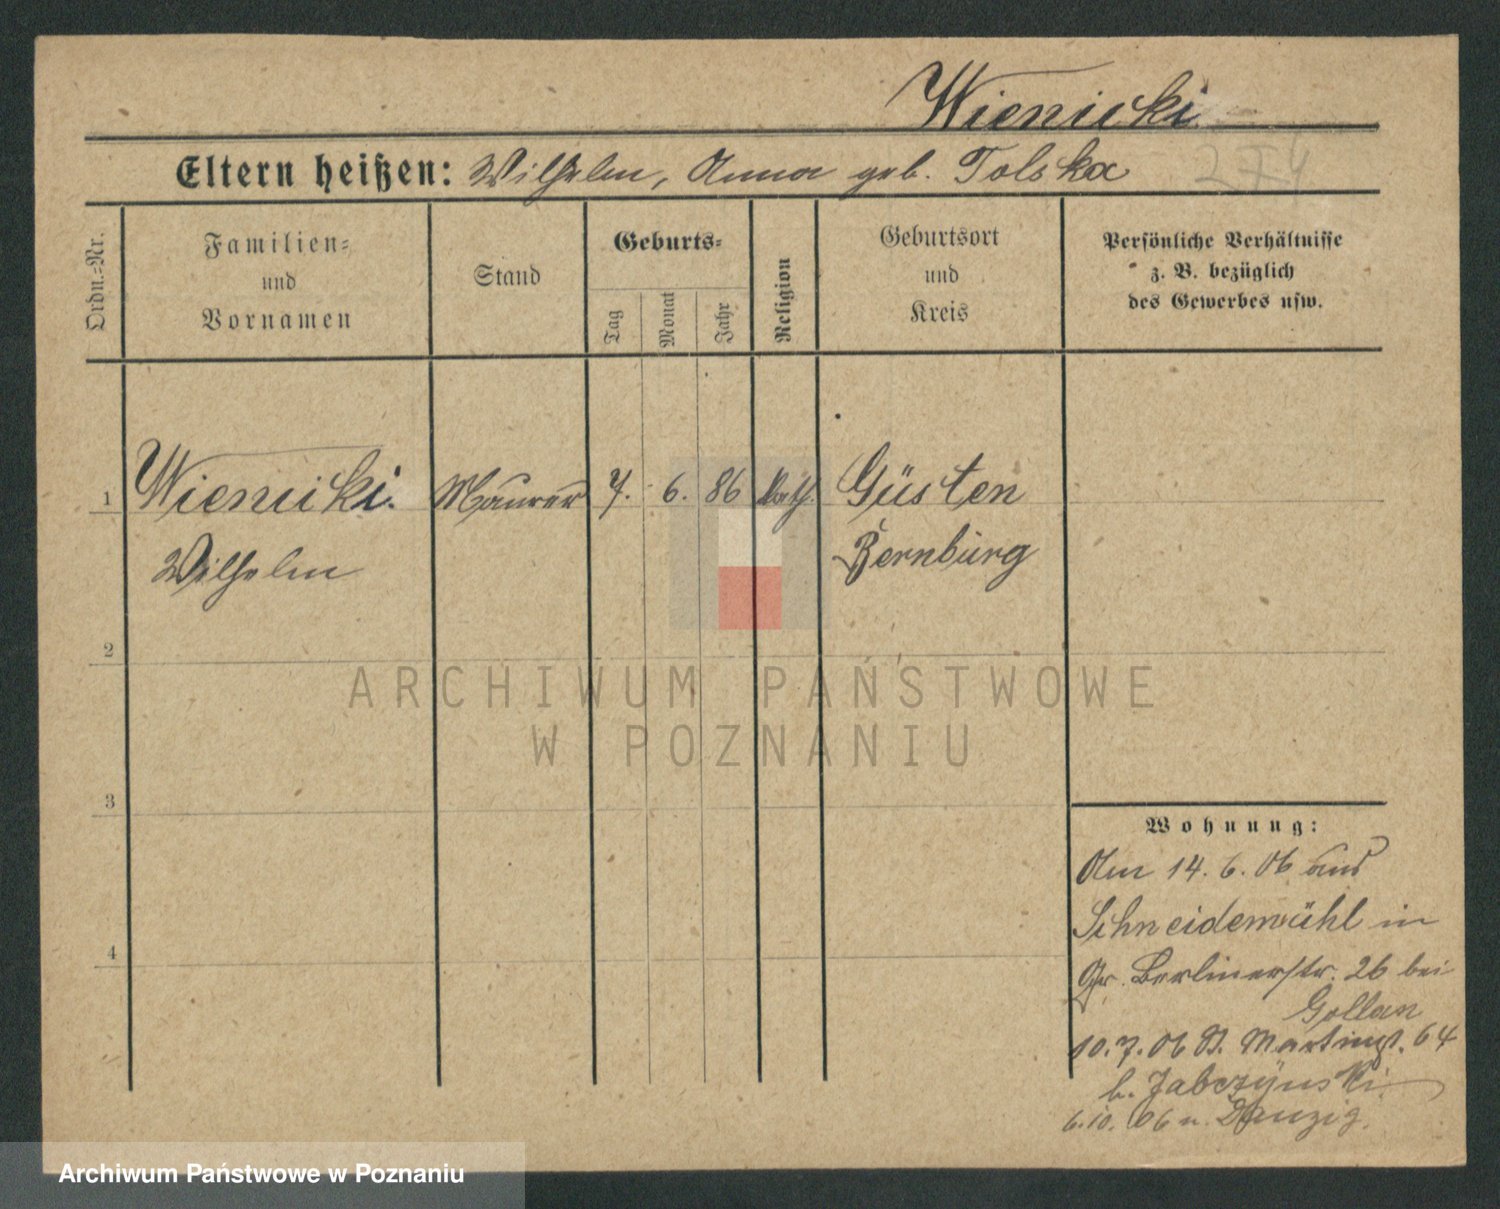 Wienicki
274
Eltern heißen: Wilhelm, Anna geb. Tolska
Ordn.=Nr.
Familien=
und
Vornamen
Stand
Geburts=
Tag
Monat
Jahr
Religion
Geburtsort
und
Kreis
Persönliche Verhältnisse
z. B. bezüglich
des Gewerbes usw.
1 Wienicki. Maurer 7. 6. 86 kath. Güsten
Wilhelm Bernburg
2
ARCHIWUM PAŃSTWOWE
W POZNANIU
3
Wohnung:
Am 14. 6. 06 aus
Schneidemühl in
Gr. Berlinerstr. 26 bei
Gollan
4
10. 7. 06 St. Martinst. 64
b. Jabczÿnski.
6. 10. 06 n. Danzig.
Archiwum Państwowe w Poznaniu